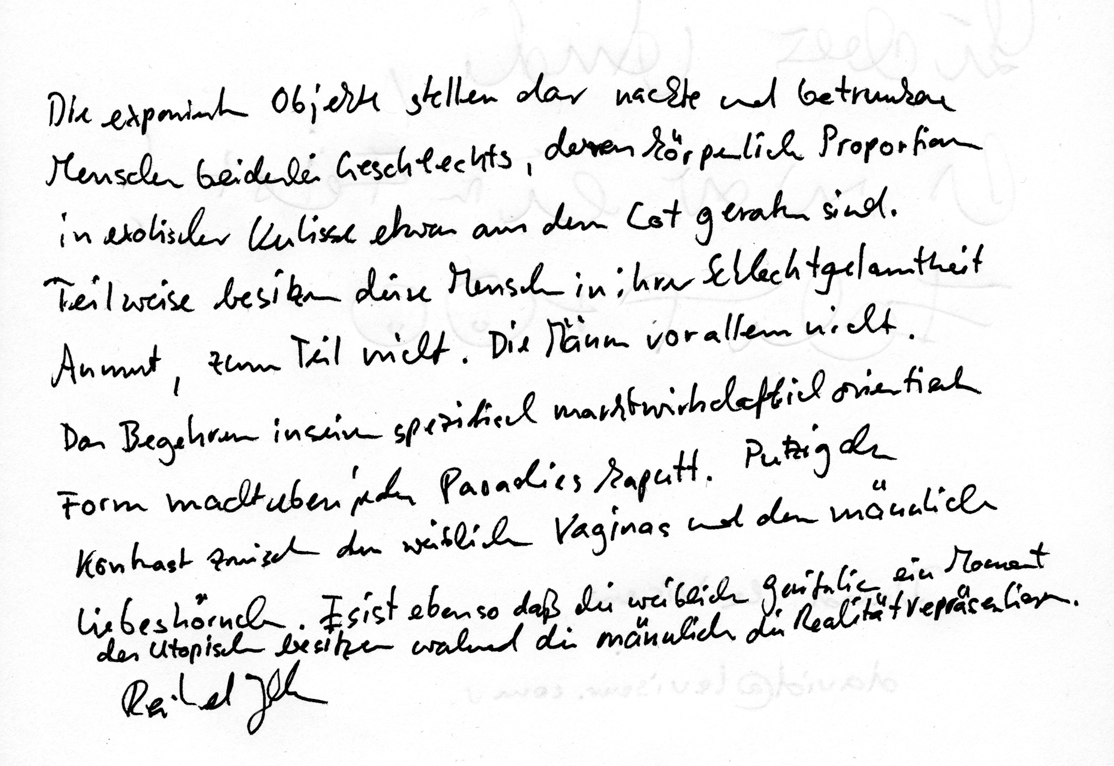 Die exponierten Objekte stellen dar nackte und betrunkene
Menschen beiderlei Geschlechts, deren körperlich Proportionen
in exotischer Kulisse etwas aus dem Lot geraten sind.
Teilweise besitzen diese Menschen in ihrer Schlechtgelauntheit
Anmut, zum Teil nicht. Die Männer vor allem nicht.
Das Begehren in seiner spezifisch marktwirtschaftlich orientierten
Form macht eben jedes Paradies kaputt. Putzig der
Kontrast zwischen den weiblichen Vaginas und den männlichen
Liebeshörnchen. Es ist eben so daß die weiblichen Genitalien ein Moment
des Utopischen besitzen während die männlichen die Realität repräsentieren.